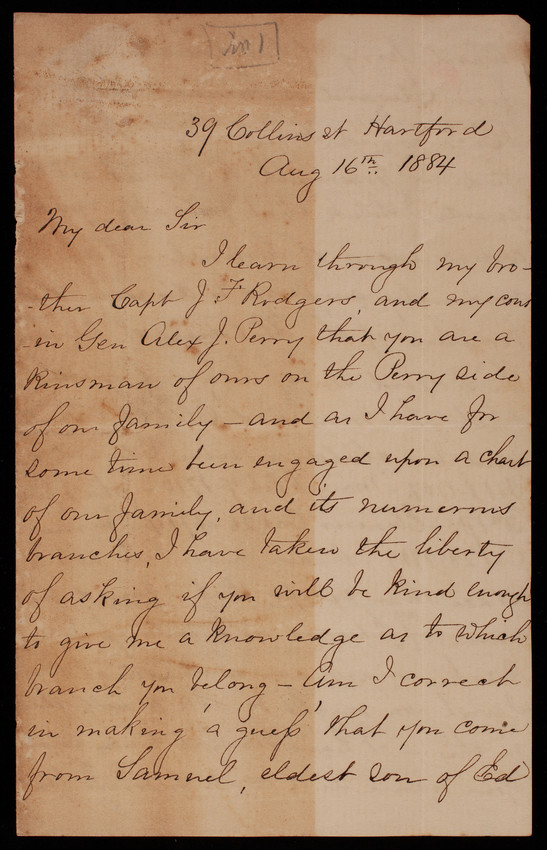 in 1
39 Collins st Hartford
Aug 16th 1884
My dear Sir
I learn through my bro-
ther Capt J F Rodgers, and my cous
-in Gen Alex J. Perry that you are a
kinsman of ours on the Perry side
of our family – and as I have for
some time been engaged upon a chart
of our family, and its numerous
branches, I have taken the liberty
of asking if you will be kind enough
to give me a knowledge as to which
branch you belong – Am I correct
in making a guess that you come
from Samuel, eldest son of Ed